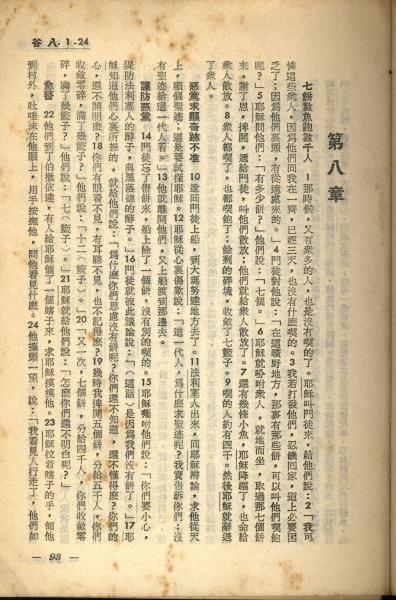 谷八．1-24
第八章
七餅數魚飽數千人 1那時候，又有衆多的人，也是沒有喫的了。耶穌叫門徒來，給他們說：2「我可
憐這些衆人，因爲他們同我在一齊，已經三天，也沒有什麼喫的。3我若打發他們，忍餓回家，道上必要困
乏了；因爲他們裏頭，有從遠處來的。」4門徒對他說：「在這曠野地方，那裏有那些餅，可以叫他們喫飽
呢？」5耶穌問他們：「有多少餅？」他們說：「七個。」6耶穌就吩咐衆人，就地而坐，取過那七個餅
來，謝了恩，掰開，遞給門徒，叫他們散放；他們就給衆人散放了。7還有幾條小魚，耶穌降福了，也命給
衆人散放。8衆人都喫了，也都喫飽了；餘剩的碎塊，收斂了七籃子。9喫的人約有四千。然後耶穌就辭退
了衆人。
惡黨求顯奇蹟不准 10遂同門徒上船，到大瑪努達地方去了。11法利塞人出來，同耶穌辯論，求他從天
上，顯個聖迹；這是要試探耶穌。12耶穌從心裏傷歎說：「這一代人，爲什麼求聖迹呢？我實告訴你們：沒
有聖迹給這一代人看。」13他就離開他們，又上船渡到那邊去。
謹防惡黨 14門徒忘了帶餅來，船上除了一個餅，沒有別的喫的。15耶穌囑咐他們說：「你們要小心，
提防法利塞人的酵子，與黑落德的酵子。」16門徒就彼此議論說：「（這話）是因爲我們沒有餅了。」17耶
穌知道他們心裏所想的，就給他們說：「爲什麼你們思慮沒有餅呢？你們還不知道，還不懂得麼？你們的
心，還不開明麼？18你們有眼看不見，有耳聽不見，也不記得麼？19幾時我掰開五個餅，分給五千人，你們
收斂零碎，滿了幾籃子？」他們說：「十二（籃子）。」20「又一次，七個餅，分給四千人，你們收斂零
碎，滿了幾籃子？」他們說：「七（籃子）。」21耶穌就給他們說：「怎麼你們還不明白呢？」
愈瞽 22他們到了伯撒依達，有人給耶穌領了一個瞎子來，求耶穌摸摸他。23耶穌拉着瞎子的手，領他
到村外，吐唾沫在他眼上，用手按着他，問他看見什麼。24他擡頭一望，說：「我看見人行走了，他們如
— 93 —